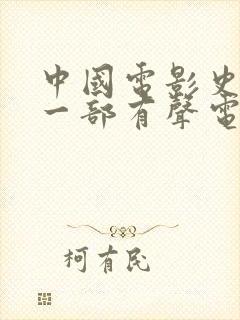 中國電影史
一部有聲電
柯有民